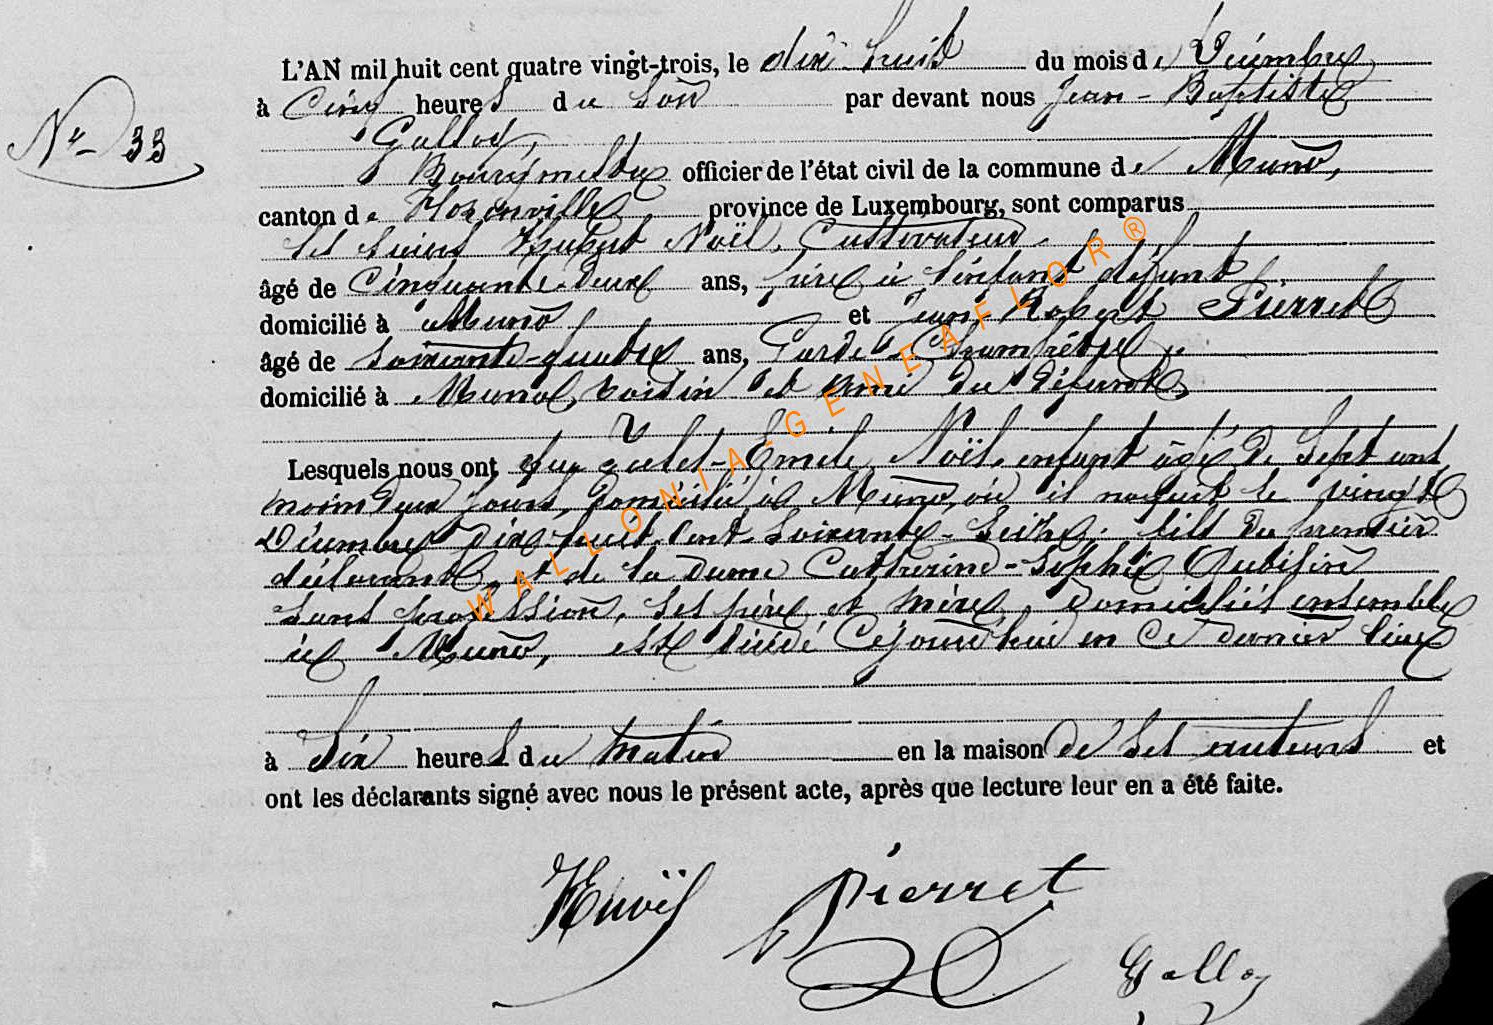 L'AN mil huit cent quatre vingt-trois, le dix huit du mois de Décembre
à Cinq heures du Soir par devant nous Jean-Baptiste
N° 33
Galloy,
Bourgmestre officier de l'état civil de la commune de Muno,
canton de Florenville province de Luxembourg, sont comparus
les sieurs Hubert Noël, Cultivateur
âgé de Cinquante-deux ans, père à l'enfant défunt
domicilié à Muno et Jean-Robert Pierret
âgé de soixante-quatre ans, Garde-Champêtre,
domicilié à Muno, voisin et ami du défunt,
Lesquels nous ont que Jules-Emile Noël, enfant âgé de Sept ans
moins deux jours, domicilié à Muno, où il naquit le vingt
Décembre dix huit cent soixante-seize, fils du premier
déclarant, et de la dame Catherine-Sophie
sans profession, ses père et mère, domiciliés ensemble
à Muno, est décédé Cejourd'hui en ce dernier lieu
à Six heures du matin en la maison de ses auteurs et
ont les déclarants signé avec nous le présent acte, après que lecture leur en a été faite.
HNoël Pierret
Galloy
WALLONIA-GENEAFLOR®